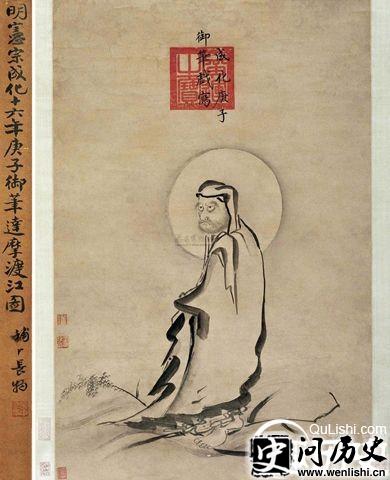 明憲宗成化十六年庚子御筆達摩渡江圖
長物
成化庚子
御筆戲寫
QuLishi.com
问历史
www.wenlishi.cn